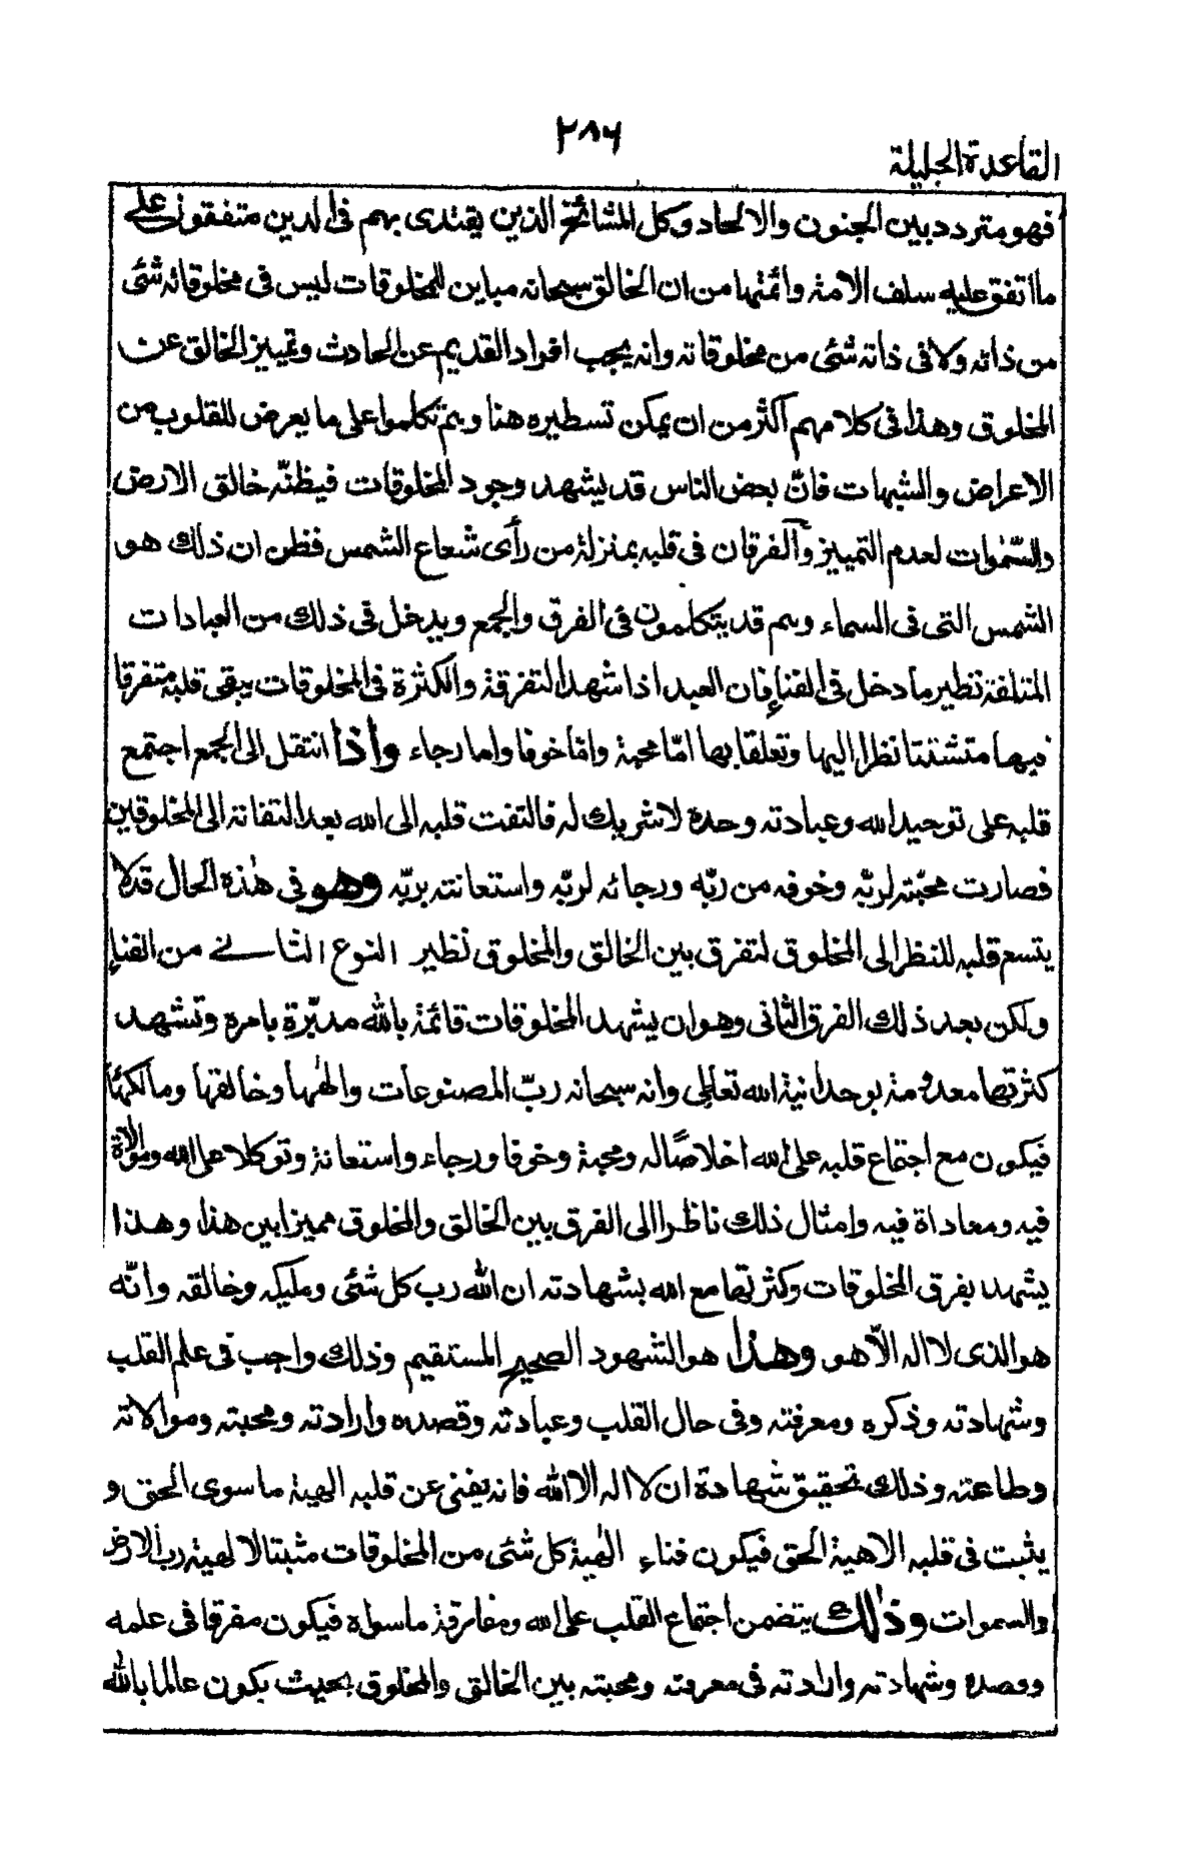 ٢٨٦
القاعدة الجليلة
فهو متردد بين الجنون والالحاد وكل المشائخ الذين يقتدى بهم فى الدين متفقون على
ما اتفق عليه سلف الامة وائمتها من ان الخالق سبحانه مباين للمخلوقات ليس فى مخلوقاته شئى
من ذاته ولا فى ذاته شئى من مخلوقاته وانه يجب افراد القديم عن الحادث وتمييز الخالق عن
المخلوق وهذا فى كلامهم أكثر من ان يمكن تسطيره هنا وهم تكلموا على ما يعرض للقلوب من
الاعراض والشبهات فانّ بعض الناس قد يشهد وجود المخلوقات فيظنّه خالق الارض
والسّمٰوات لعدم التمييز والفرقان فى قلبه بمنزلة من رأى شعاع الشمس فظن ان ذلك هو
الشمس التى فى السماء وهم قد يتكلمون فى الفرق والجمع ويدخل فى ذلك من العبادات
المتلفة نظير ما دخل فى الفناء فان العبد اذا شهد التفرقة والكثرة فى المخلوقات يبقى قلبه متفرقا
فيها متشتتا نظرا اليها وتعلقا بها امّا محبة وامّا خوفا واما رجاء واذا انتقل الى الجمع اجتمع
قلبه على توحيد الله وعبادته وحدة لا شريك له فالتفت قلبه الى الله بعد التفاته الى المخلوقين
فصارت محبّته لربّه وخوفه من ربّه ورجائه لربّه واستعانته بربّه وهو فى هٰذه الحال قد لا
يتسع قلبه للنظر الى المخلوق لتفرق بين الخالق والمخلوق نظير النوع الثانى من الفناء
ولكن بعد ذلك الفرق الثانى وهو ان يشهد المخلوقات قائمة بالله مدبّرة بامره وتشهد
كثرتها معدومة بوحدانية الله تعالى وانه سبحانه ربّ المصنوعات والٰهها وخالقها ومالكها
فيكون مع اجتماع قلبه على الله اخلاصًا له ومحبة وخوفا ورجاء واستعانة وتوكلا على الله وموالاة
فيه ومعاداة فيه وامثال ذلك ناظرا الى الفرق بين الخالق والمخلوق مميزا بين هذا وهذا
يشهد بفرق المخلوقات وكثرتها مع الله بشهادته ان الله رب كل شئى ومليكه وخالقه وانّه
هو الذى لا اله الّا هو وهذا هو الشهود الصحيح المستقيم وذلك واجب فى علم القلب
وشهادته وذكره ومعرفته وفى حال القلب وعبادته وقصده وارادته ومحبته وموالاته
وطاعته وذلك تحقيق شهادة ان لا اله الا الله فانه يفنى عن قلبه الهية ما سوى الحق و
يثبت فى قلبه الاهية الحق فيكون فناء الٰهية كل شئى من المخلوقات مثبتا لالهية رب الارض
والسموات وذٰلك يتضمن اجتماع القلب على الله ومفارقة ما سواه فيكون مفرقا فى علمه
وقصده وشهادته وارادته فى معرفته ومحبته بين الخالق والمخلوق بحيث يكون عالما بالله